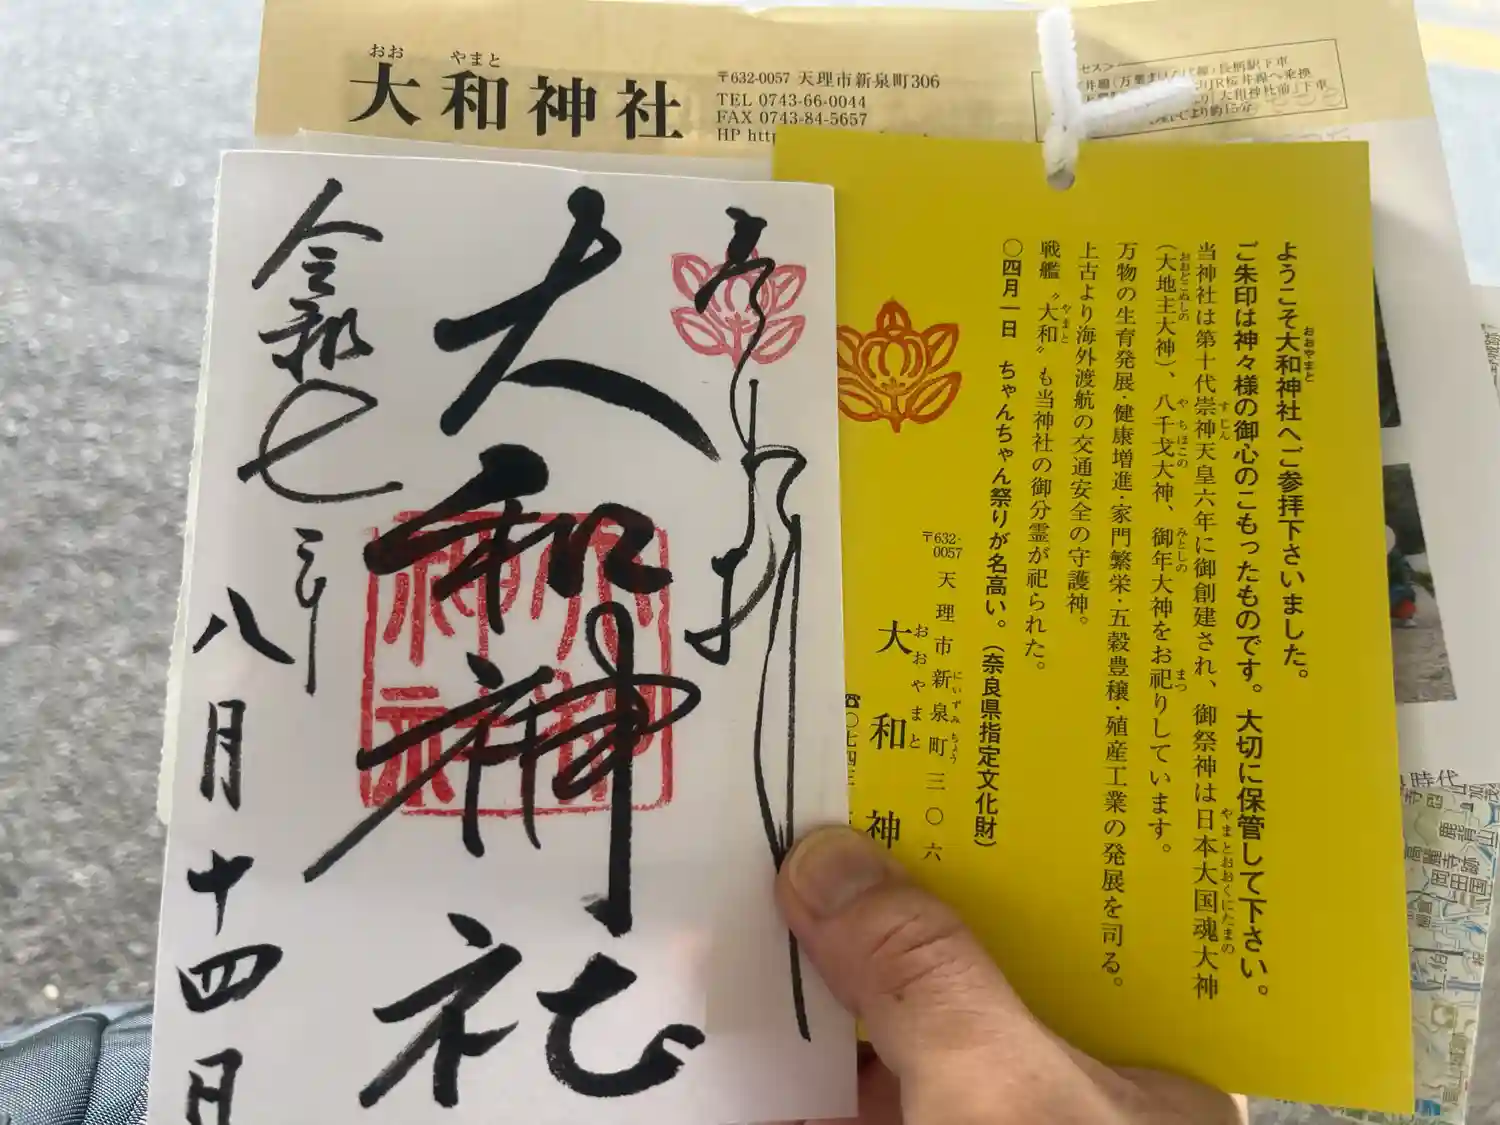 大和神社
おお やまと
〒632-0057 天理市新泉町306
TEL 0743-66-0044
FAX 0743-84-5657
HP
大和神社
令和七年
八月十四日
大和神社
ようこそ大和神社へご参拝下さいました。
おおやまと
ご朱印は神々様の御心のこもったものです。大切に保管して下さい。
当神社は第十代崇神天皇六年に御創建され、御祭神は日本大国魂大神
すじん
やまとおおくにたまの
(大地主大神)、八千戈大神、御年大神をお祀りしています。
おおどこぬしの
やちほこの
みとしの
まつ
万物の生育発展・健康増進・家門繁栄・五穀豊穣・殖産工業の発展を司る。
上古より海外渡航の交通安全の守護神。
戦艦〝大和〟も当神社の御分霊が祀られた。
やまと
〇四月一日 ちゃんちゃん祭りが名高い。(奈良県指定文化財)
〒632-0057 天理市新泉町三〇六
にいずみちょう
大和神
おおやまと
☎〇七四三